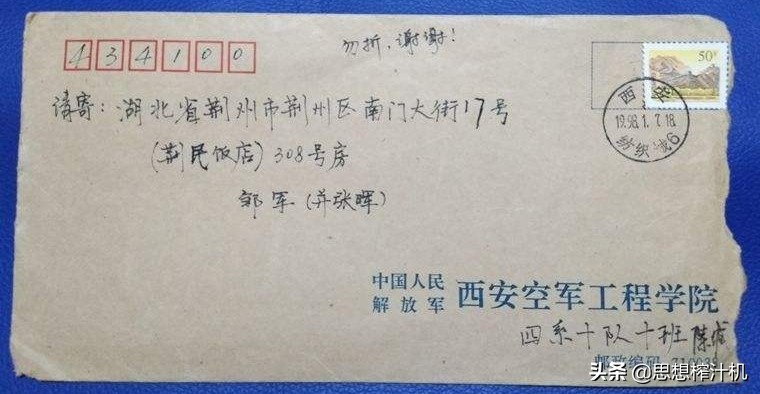 434100
勿折,谢谢!
50分
请寄:湖北省荆州市荆州区南门大街17号
(荆民饭店)308号房
邹军(并张晖)
西安
1998.1.7.18
纺织城6
中国人民
解放军
西安空军工程学院
四系十队十班陈
邮政编码 710038
头条 @思想榨汁机